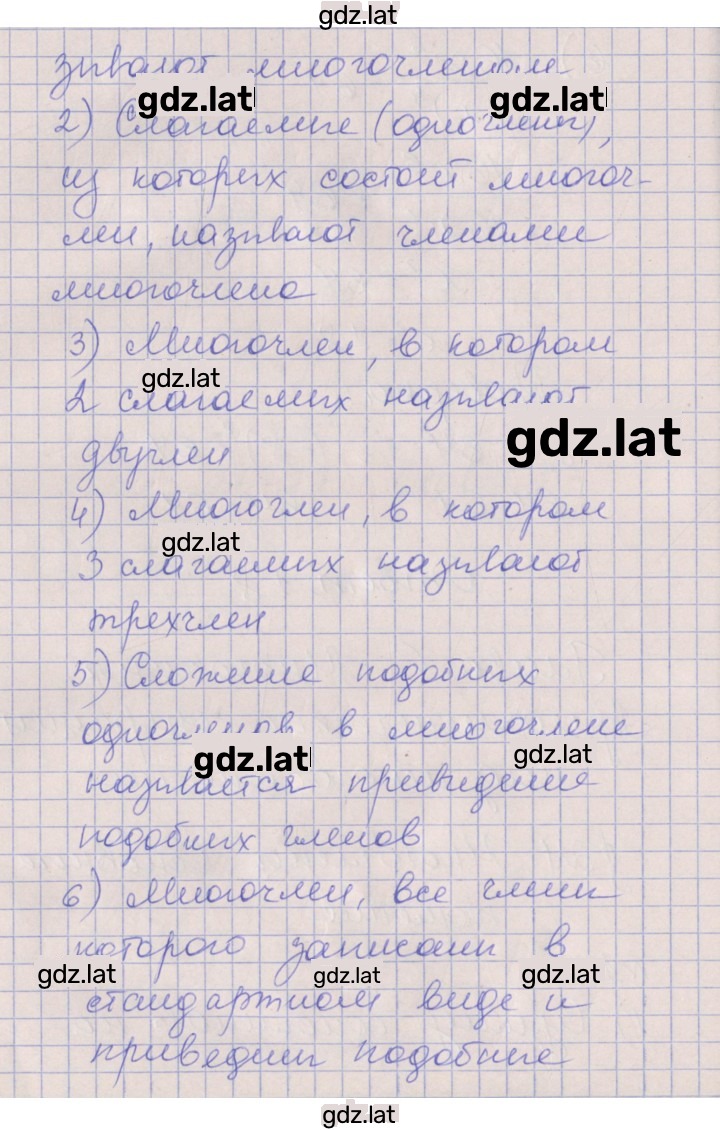 gdz.latzывают многочленом
gdz.lat gdz.lat
2) Слагаемые (одночлены),
из которых состоит многоч-
лен, называют членами
многочлена
3) Многочлен, в котором
gdz.lat
2 слагаемых называют
gdz.lat
двучлен
4) Многочлен, в котором
gdz.lat
3 слагаемых называют
трехчлен
5) Сложение подобных
одночленов в многочлене
gdz.lat gdz.lat
называется приведение
подобных членов
6) Многочлен, все члены
которого записаны в
gdz.lat gdz.lat gdz.lat
стандартном виде и
приведены подобные
gdz.lat